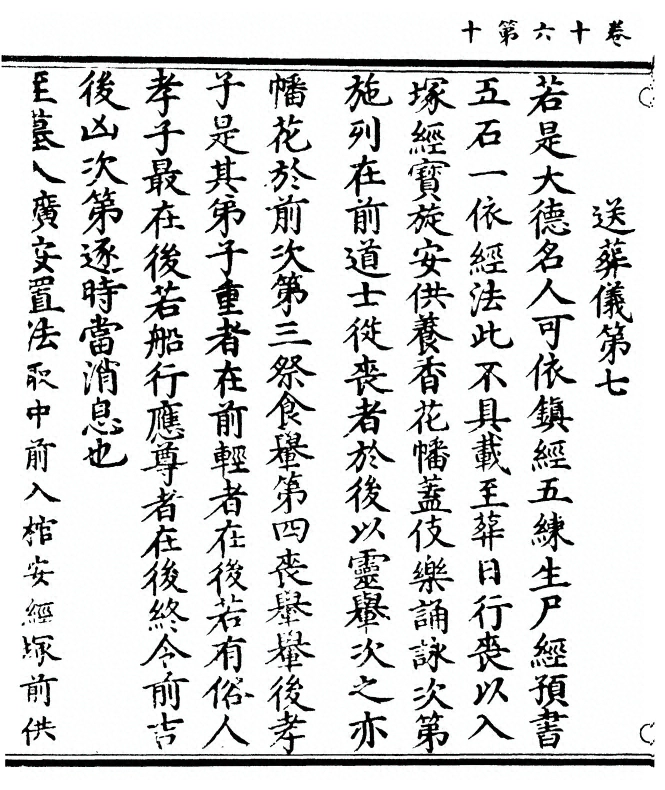 卷十六第十
送葬儀第七
若是大德名人可依鎮經五練生尸經預書
五石一依經法此不具載至葬日行喪以入
塚經寶㫌安供養香花幡蓋伎樂誦詠次第
施列在前道士從喪者於後以靈轝次之亦
幡花於前次第三祭食轝第四喪轝轝後孝
子是其弟子重者在前輕者在後若有俗人
孝子最在後若船行應尊者在後終令前吉
後凶次第逐時當消息也
至墓入廣安置法取中前入棺安經塚前供